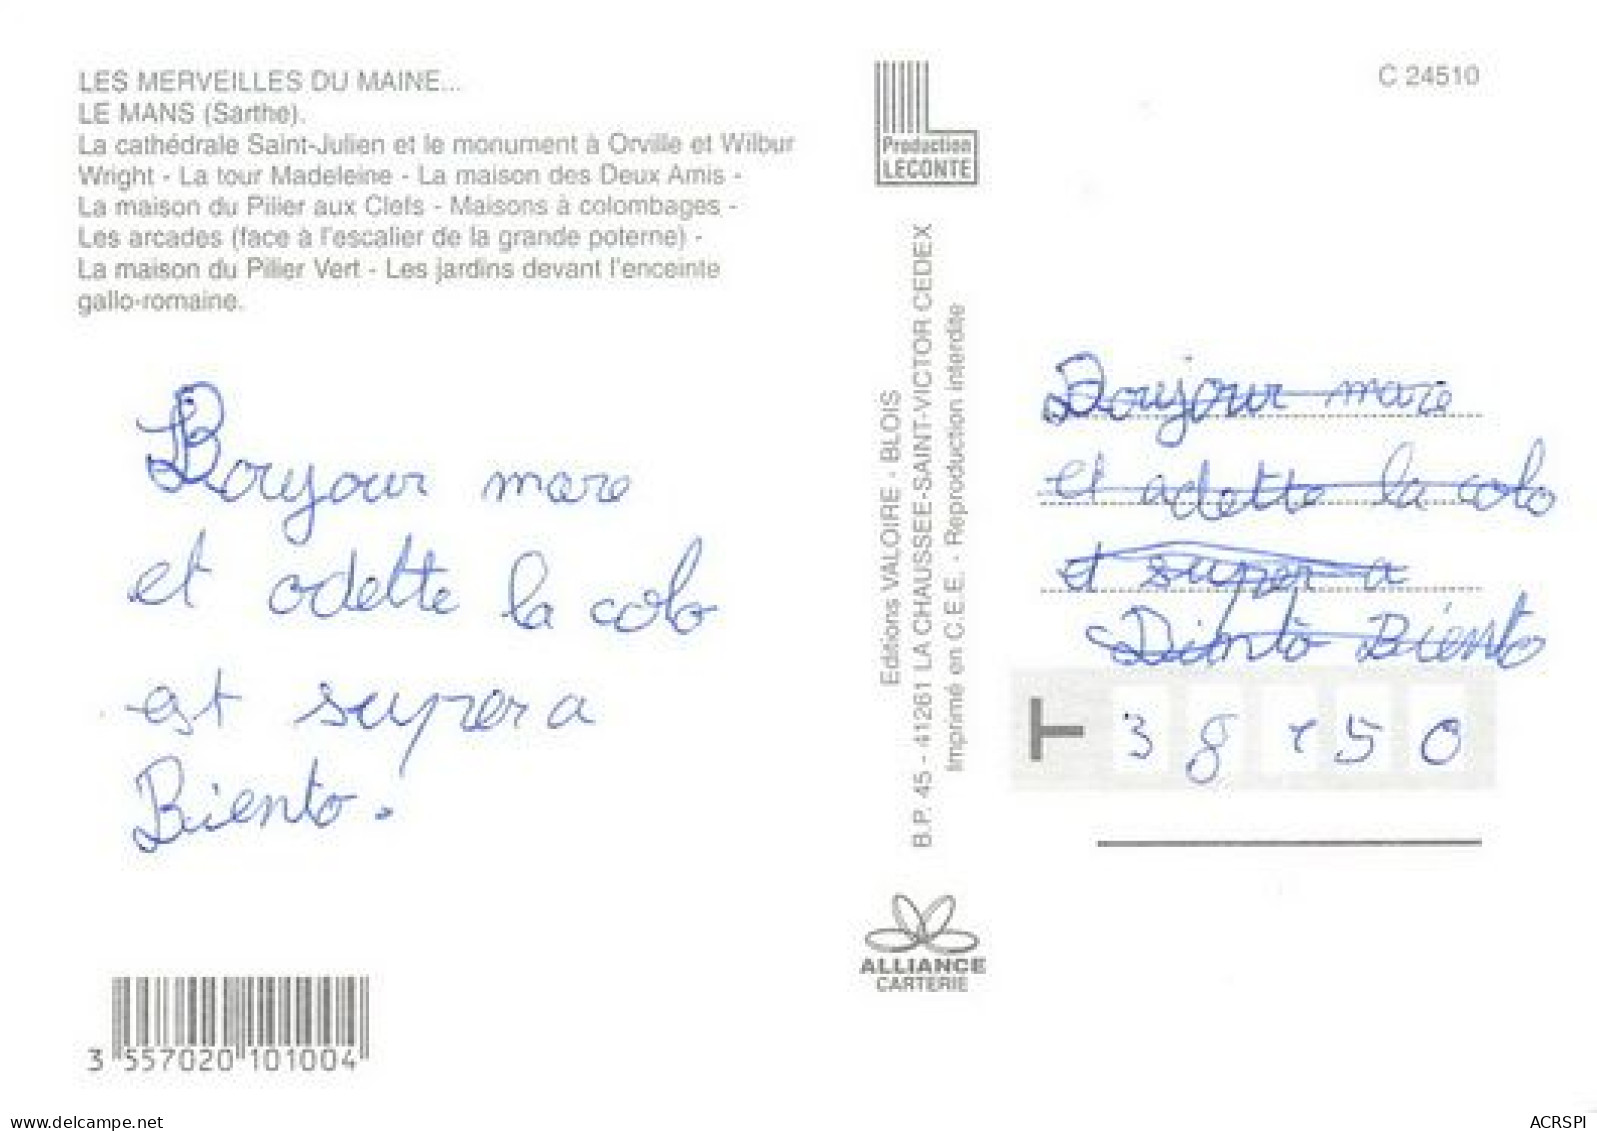 LES MERVEILLES DU MAINE...
LE MANS (Sarthe).
La cathédrale Saint-Julien et le monument à Orville et Wilbur
Wright - La tour Madeleine - La maison des Deux Amis -
La maison du Pilier aux Clefs - Maisons à colombages -
Les arcades (face à l'escalier de la grande poterne) -
La maison du Pilier Vert - Les jardins devant l'enceinte
gallo-romaine.
Bonjour mare
et odette la colo
est super a
Biento.
3 557020 101004
Production
LECONTE
Editions VALOIRE - BLOIS
B.P. 45 - 41261 LA CHAUSSEE-SAINT-VICTOR CEDEX
Imprimé en C.E.E. - Reproduction interdite
ALLIANCE
CARTERIE
C 24510
Bonjour mare
et odette la colo
et super a
Biento
38 50
www.delcampe.net
ACRSPI